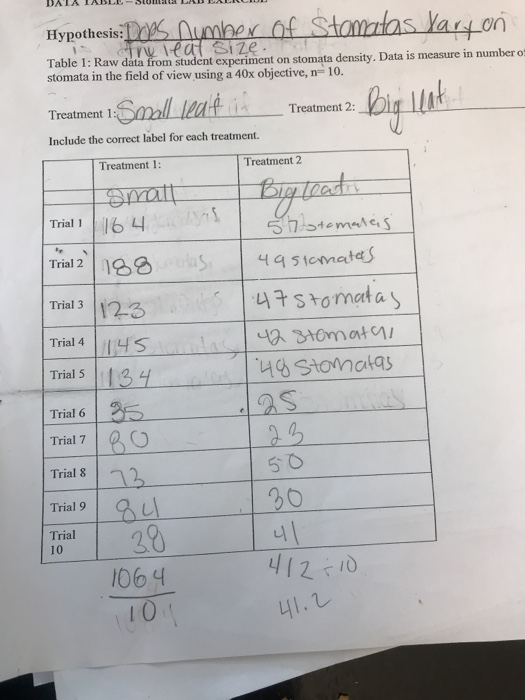 Hypothesis: Does number of Stomatas Vary on
the leaf size.
Table 1: Raw data from student experiment on stomata density. Data is measure in number o
stomata in the field of view using a 40x objective, n= 10.
Treatment 1: Small leaf
Treatment 2: Big
Include the correct label for each treatment.
Treatment 1: Treatment 2
Small Big leaf
Trial 1 164 57 stomateis
Trial 2 188 49 stomatas
Trial 3 123 47 stomatas
Trial 4 145 42 stomatas
Trial 5 134 48 Stomatas
Trial 6 35 25
Trial 7 80 23
Trial 8 73 50
Trial 9 84 30
Trial 38 41
10
1064 412 ÷ 10
10 41.2